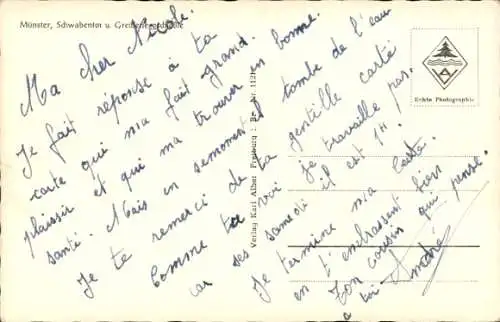 Münster, Schwabentor u. Greiffeneggschlößle
Echte Photographie
Verlag Karl Alber Freiburg i. Br. Nr. 112
Ma cher Nicole.
Je fait réponse à ta
carte qui m'a fait grand.
plaissir et qui ma trouver en bonne.
santé. Mais en se moment tombe de l'eau
Je te remerci de ta gentille carté
Comme tu voi je travaille pas.
car ses samedi il est 1H.
Je termine ma carta.
en t'embrassent bien
Ton cousin qui pense.
a toi André